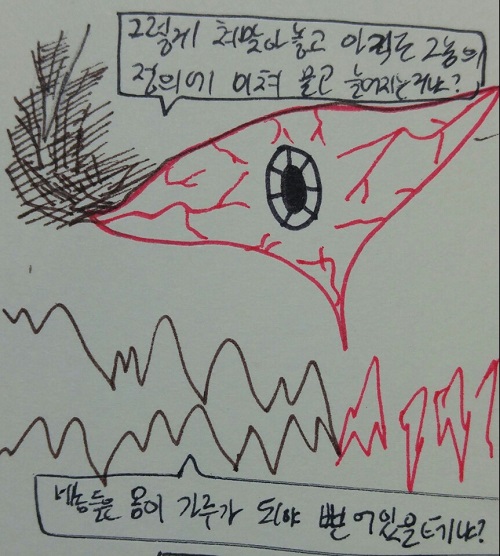 그렇게 처맞아 놓고 아직도 그놈의
정의에 미쳐 물고 늘어지는거냐?
네놈들은 몸이 가루가 되야 뻗어있을테냐?